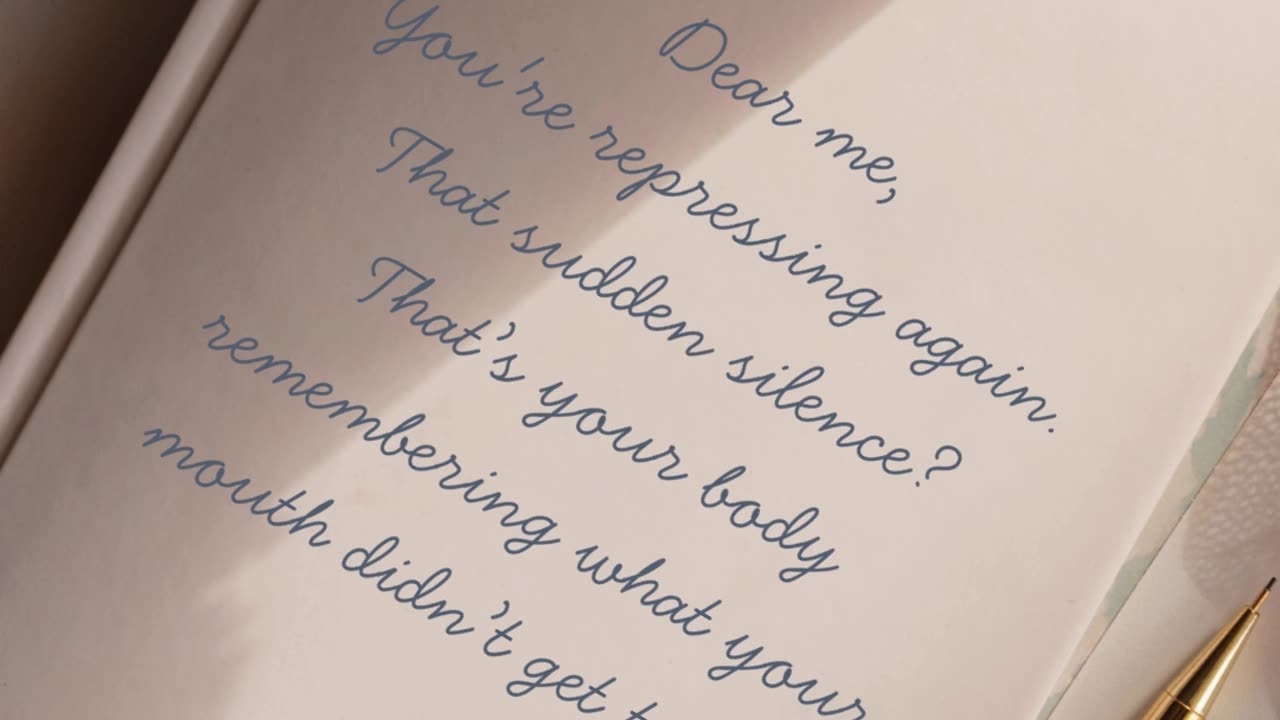 Dear me,
You're repressing again.
That sudden silence?
That's your body
remembering what your
mouth didn't get